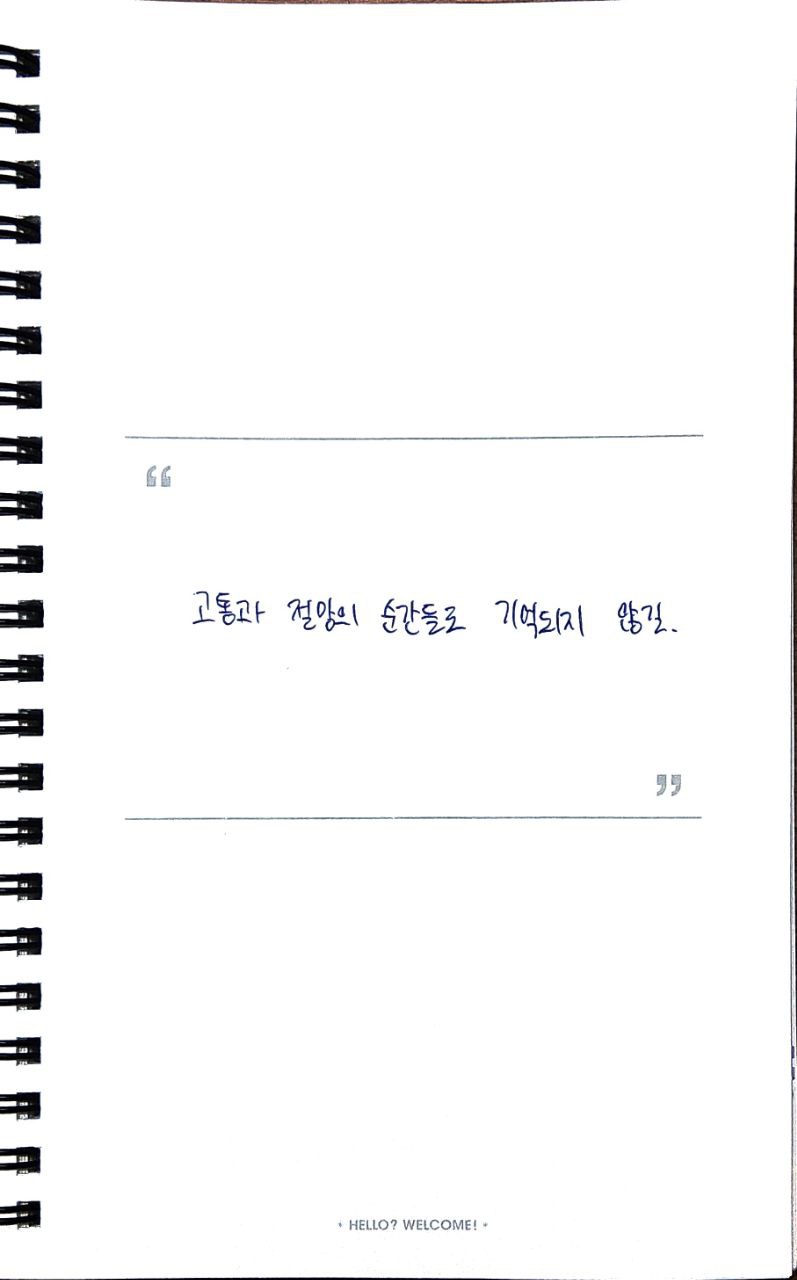 “
고통과 절망의 순간들로 기억되지 않길.
”
* HELLO? WELCOME! *